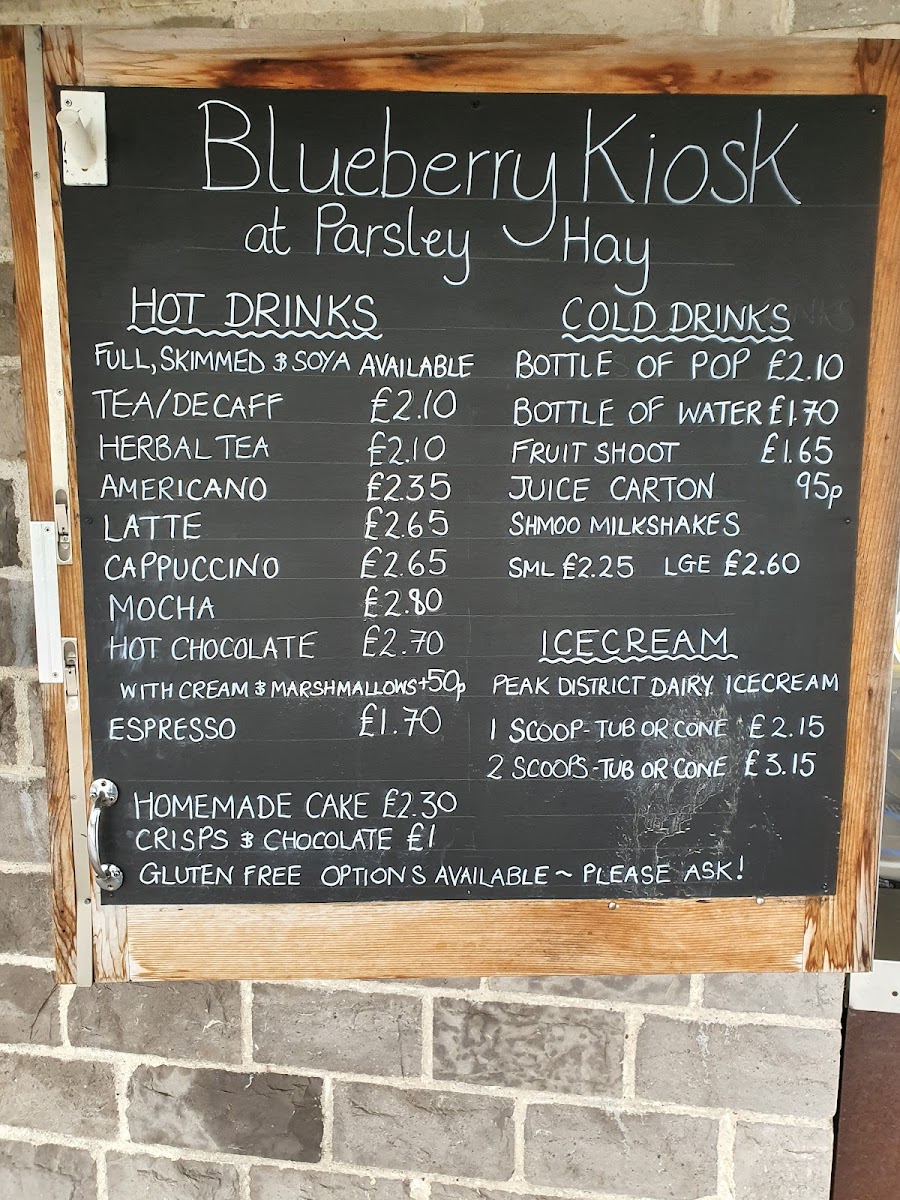 Blueberry Kiosk
at Parsley Hay
HOT DRINKS
FULL, SKIMMED & SOYA AVAILABLE
TEA/DECAFF £2.10
HERBAL TEA £2.10
AMERICANO £2.35
LATTE £2.65
CAPPUCCINO £2.65
MOCHA £2.80
HOT CHOCOLATE £2.70
WITH CREAM & MARSHMALLOWS +50p
ESPRESSO £1.70
COLD DRINKS
BOTTLE OF POP £2.10
BOTTLE OF WATER £1.70
FRUIT SHOOT £1.65
JUICE CARTON 95p
SHMOO MILKSHAKES
SML £2.25 LGE £2.60
ICECREAM
PEAK DISTRICT DAIRY ICECREAM
1 SCOOP - TUB OR CONE £2.15
2 SCOOPS - TUB OR CONE £3.15
HOMEMADE CAKE £2.30
CRISPS & CHOCOLATE £1
GLUTEN FREE OPTIONS AVAILABLE ~ PLEASE ASK!